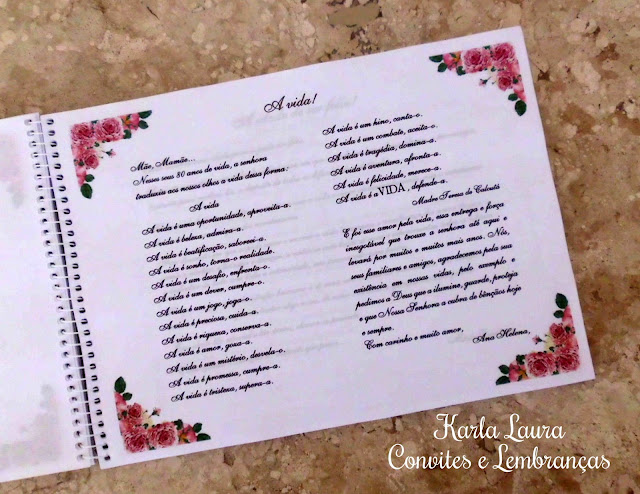 A vida!
Mãe, Mamãe...
Nesses seus 80 anos de vida, a senhora
traduziu aos nossos olhos a vida dessa forma:
A vida
A vida é uma oportunidade, aproveita-a.
A vida é beleza, admira-a.
A vida é beatificação, saborei-a.
A vida é sonho, torna-o realidade.
A vida é um desafio, enfrenta-o.
A vida é um dever, cumpre-o.
A vida é um jogo, joga-o.
A vida é preciosa, cuida-a.
A vida é riqueza, conserva-a.
A vida é amor, goza-a.
A vida é um mistério, desvela-o.
A vida é promessa, cumpre-a.
A vida é tristeza, supera-a.
A vida é um hino, canta-o.
A vida é um combate, aceita-o.
A vida é tragédia, domina-a.
A vida é aventura, afronta-a.
A vida é felicidade, merece-a.
A vida é a VIDA, defende-a.
Madre Teresa de Calcutá
E foi esse amor pela vida, essa entrega e força
inesgotável que trouxe a senhora até aqui e
levará por muitos e muitos mais anos. Nós,
seus familiares e amigos, agradecemos pela sua
existência em nossas vidas, pelo exemplo e
pedimos a Deus que a ilumine, guarde, proteja
e que Nossa Senhora a cubra de bênçãos hoje
e sempre.
Com carinho e muito amor,
Ana Helena,
Karla Laura
Convites e Lembranças